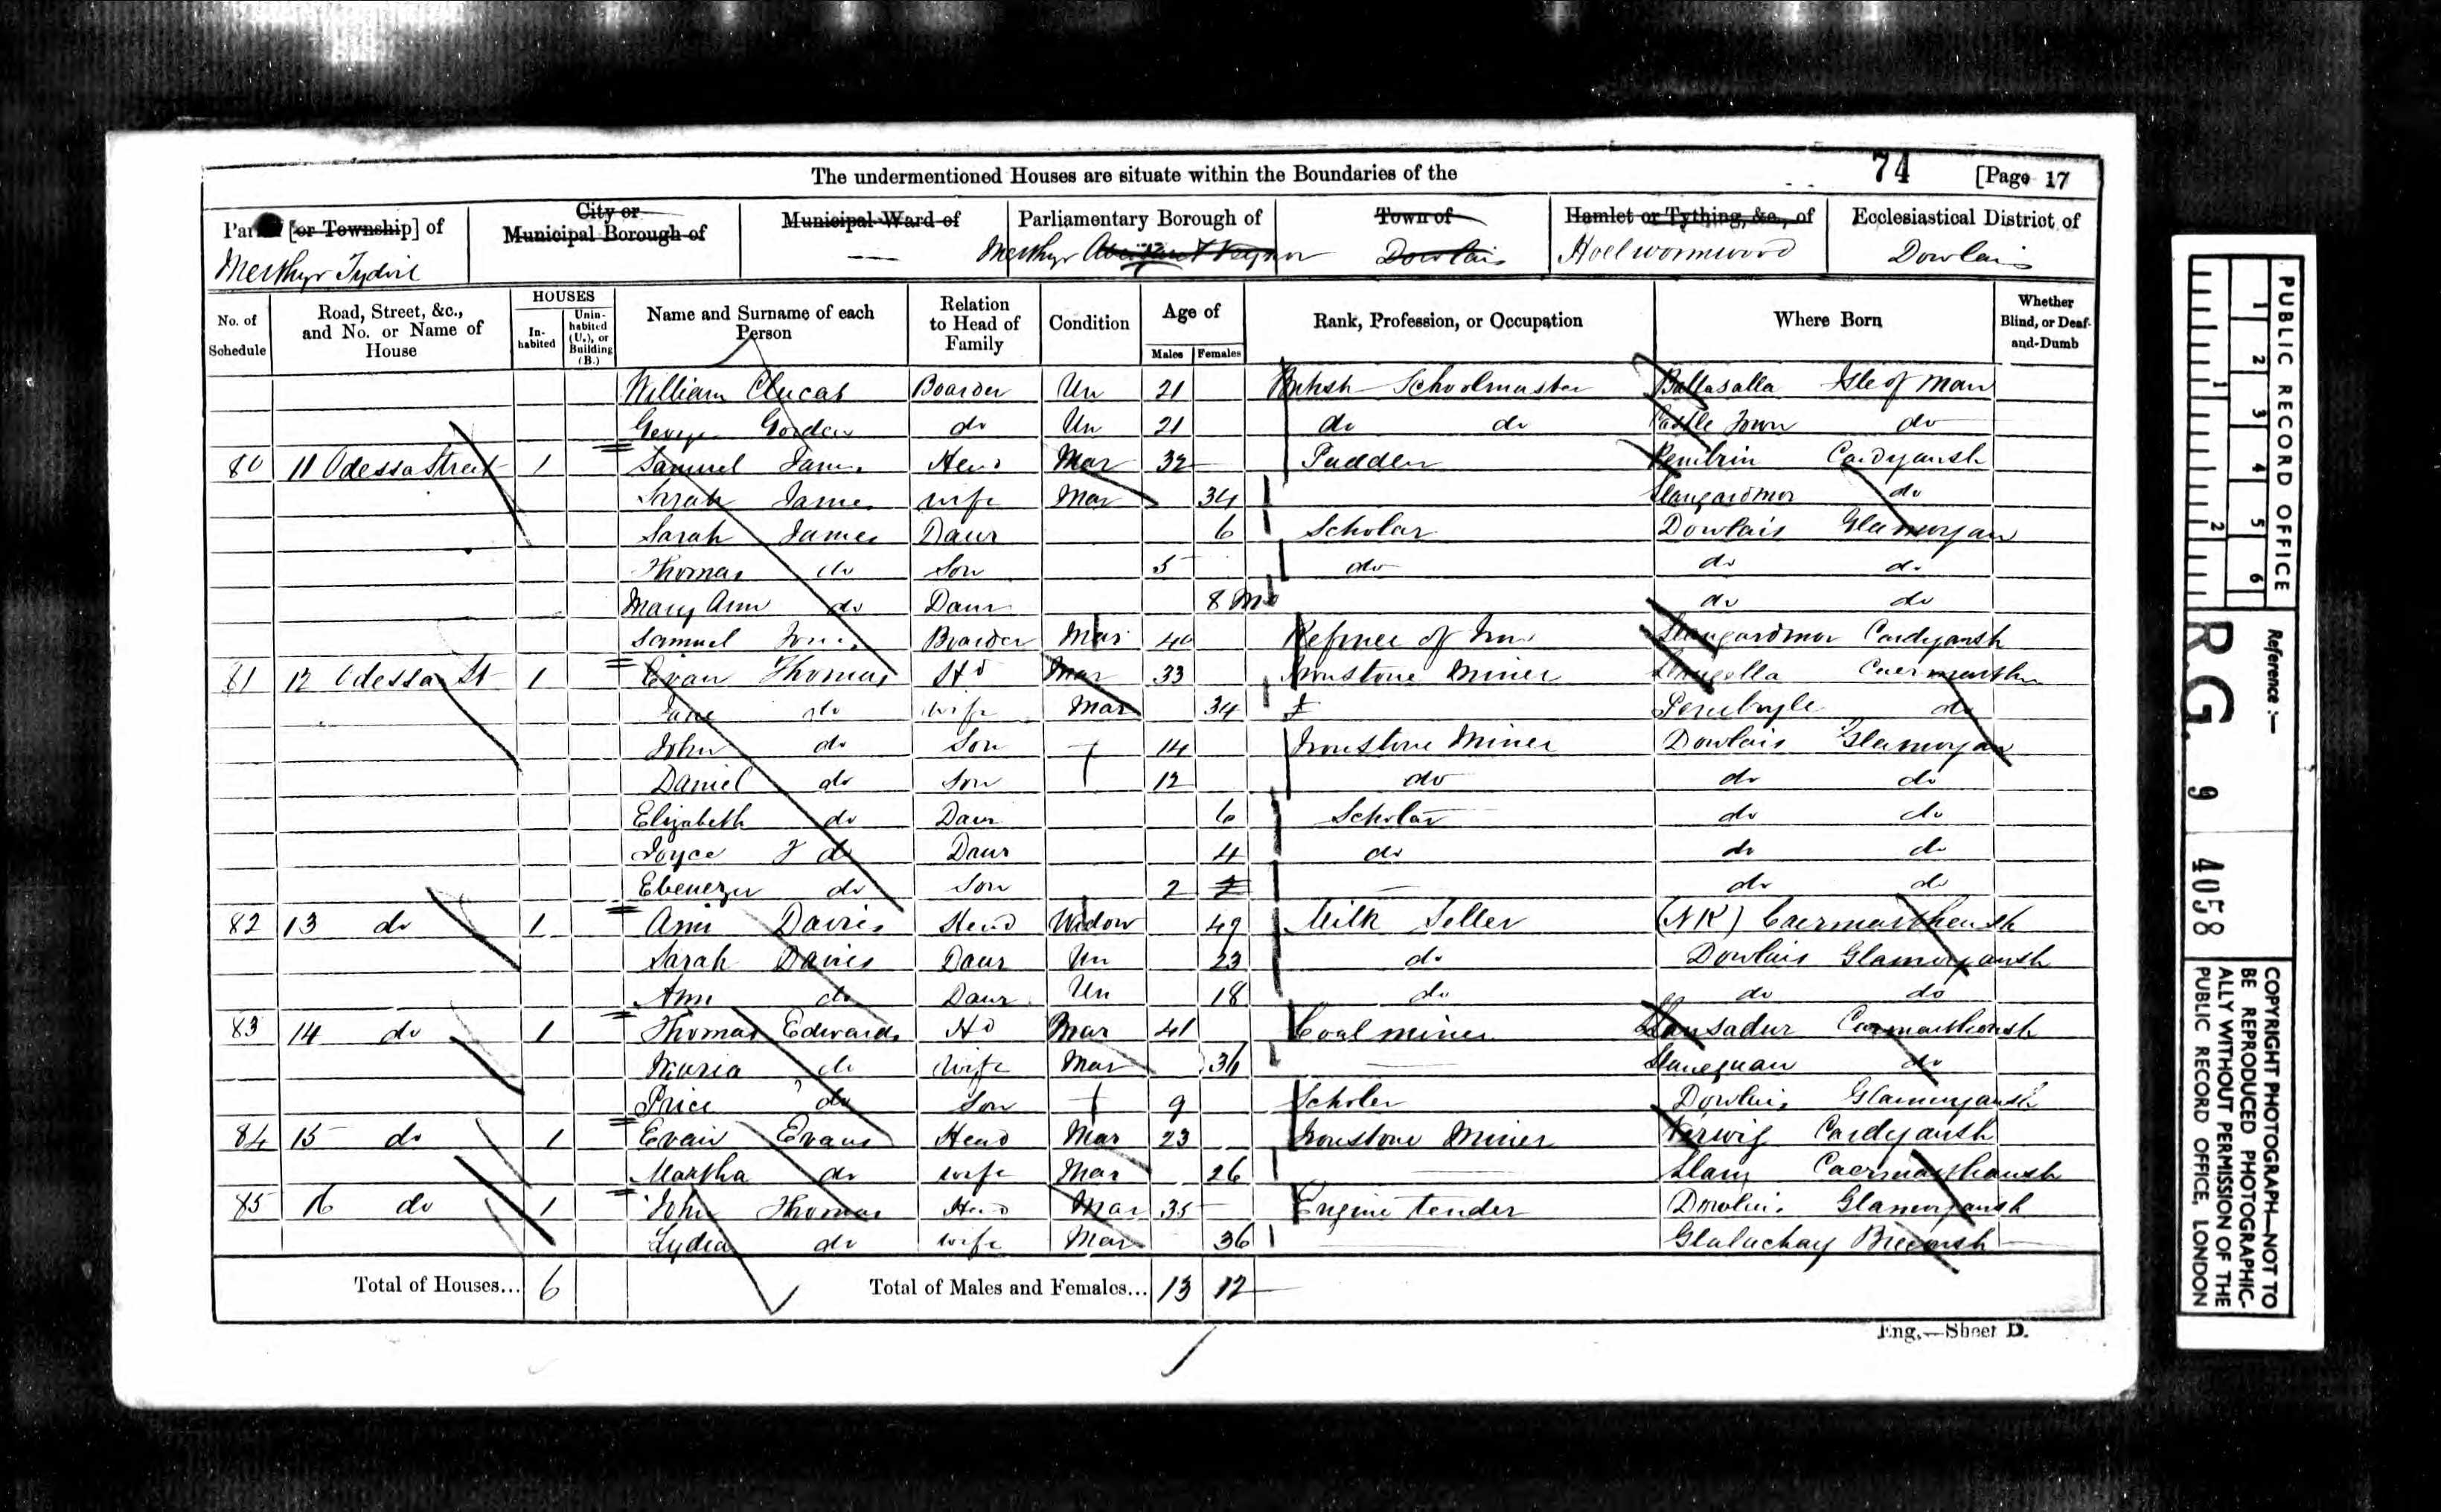 The undermentioned Houses are situate within the Boundaries of the
74 [Page 17
[or Township] of
City or Municipal Borough of
Municipal Ward of
Parliamentary Borough of
Town of
Hamlet or Tything, &c., of
Ecclesiastical District of
Merthyr Tydvil — Merthyr Dowlais Hoelwormwood Dowlais
No. of Schedule
Road, Street, &c., and No. or Name of House
HOUSES
In-habited
Unin-habited (U.), or Building (B.)
Name and Surname of each Person
Relation to Head of Family
Condition
Age of
Males
Females
Rank, Profession, or Occupation
Where Born
Whether Blind, or Deaf-and-Dumb
William Clucas Boarder Un 21 British Schoolmaster Ballasalla Isle of Man
George Gorden do Un 21 do do Castle Town do
80 11 Odessa Street 1 Samuel James Head Mar 32 Puddler Penbrin Cardygansh
Sarah James wife Mar 34 Llangardmor do
Sarah James Daur 6 Scholar Dowlais Glamorgan
Thomas do Son 5 do do do
Mary Ann do Daur 8 Mo do do
Samuel Boarder Mar 40 Refiner of Iron Llangardmor Cardygansh
81 12 Odessa St 1 Evan Thomas Hd Mar 33 Ironstone Miner Caermarthen
Jane do wife Mar 34 do
John do Son 14 Ironstone Miner Dowlais Glamorgan
Daniel do Son 12 do do do
Elizabeth do Daur 6 Scholar do do
Joyce J do Daur 4 do do do
Ebenezer do Son 2 — do do
82 13 do 1 Ann Davies Head Widow 49 Milk Seller (NK) Caermarthensh
Sarah Davies Daur Un 23 do Dowlais Glamorgansh
Ann do Daur Un 18 do do do
83 14 do 1 Thomas Edwards Hd Mar 41 Coal miner Llansadur Carmarthensh
Maria do Wife Mar 36 — do
Price do Son 9 Scholer Dowlais Glamorgansh
84 15 do 1 Evan Evans Head Mar 23 Ironstone Miner Verwig Cardygansh
Martha do wife Mar 26 — Caermarthensh
85 16 do 1 John Thomas Head Mar 35 Engine tender Dowlais Glamorgansh
Lydia do wife Mar 36 — Breconsh
Total of Houses... 6 Total of Males and Females... 13 12
Eng.—Sheet D.
PUBLIC RECORD OFFICE
1 2 3 4 5 6
1 2
Reference :—
R.G. 9 4058
COPYRIGHT PHOTOGRAPH—NOT TO BE REPRODUCED PHOTOGRAPHIC-ALLY WITHOUT PERMISSION OF THE PUBLIC RECORD OFFICE, LONDON